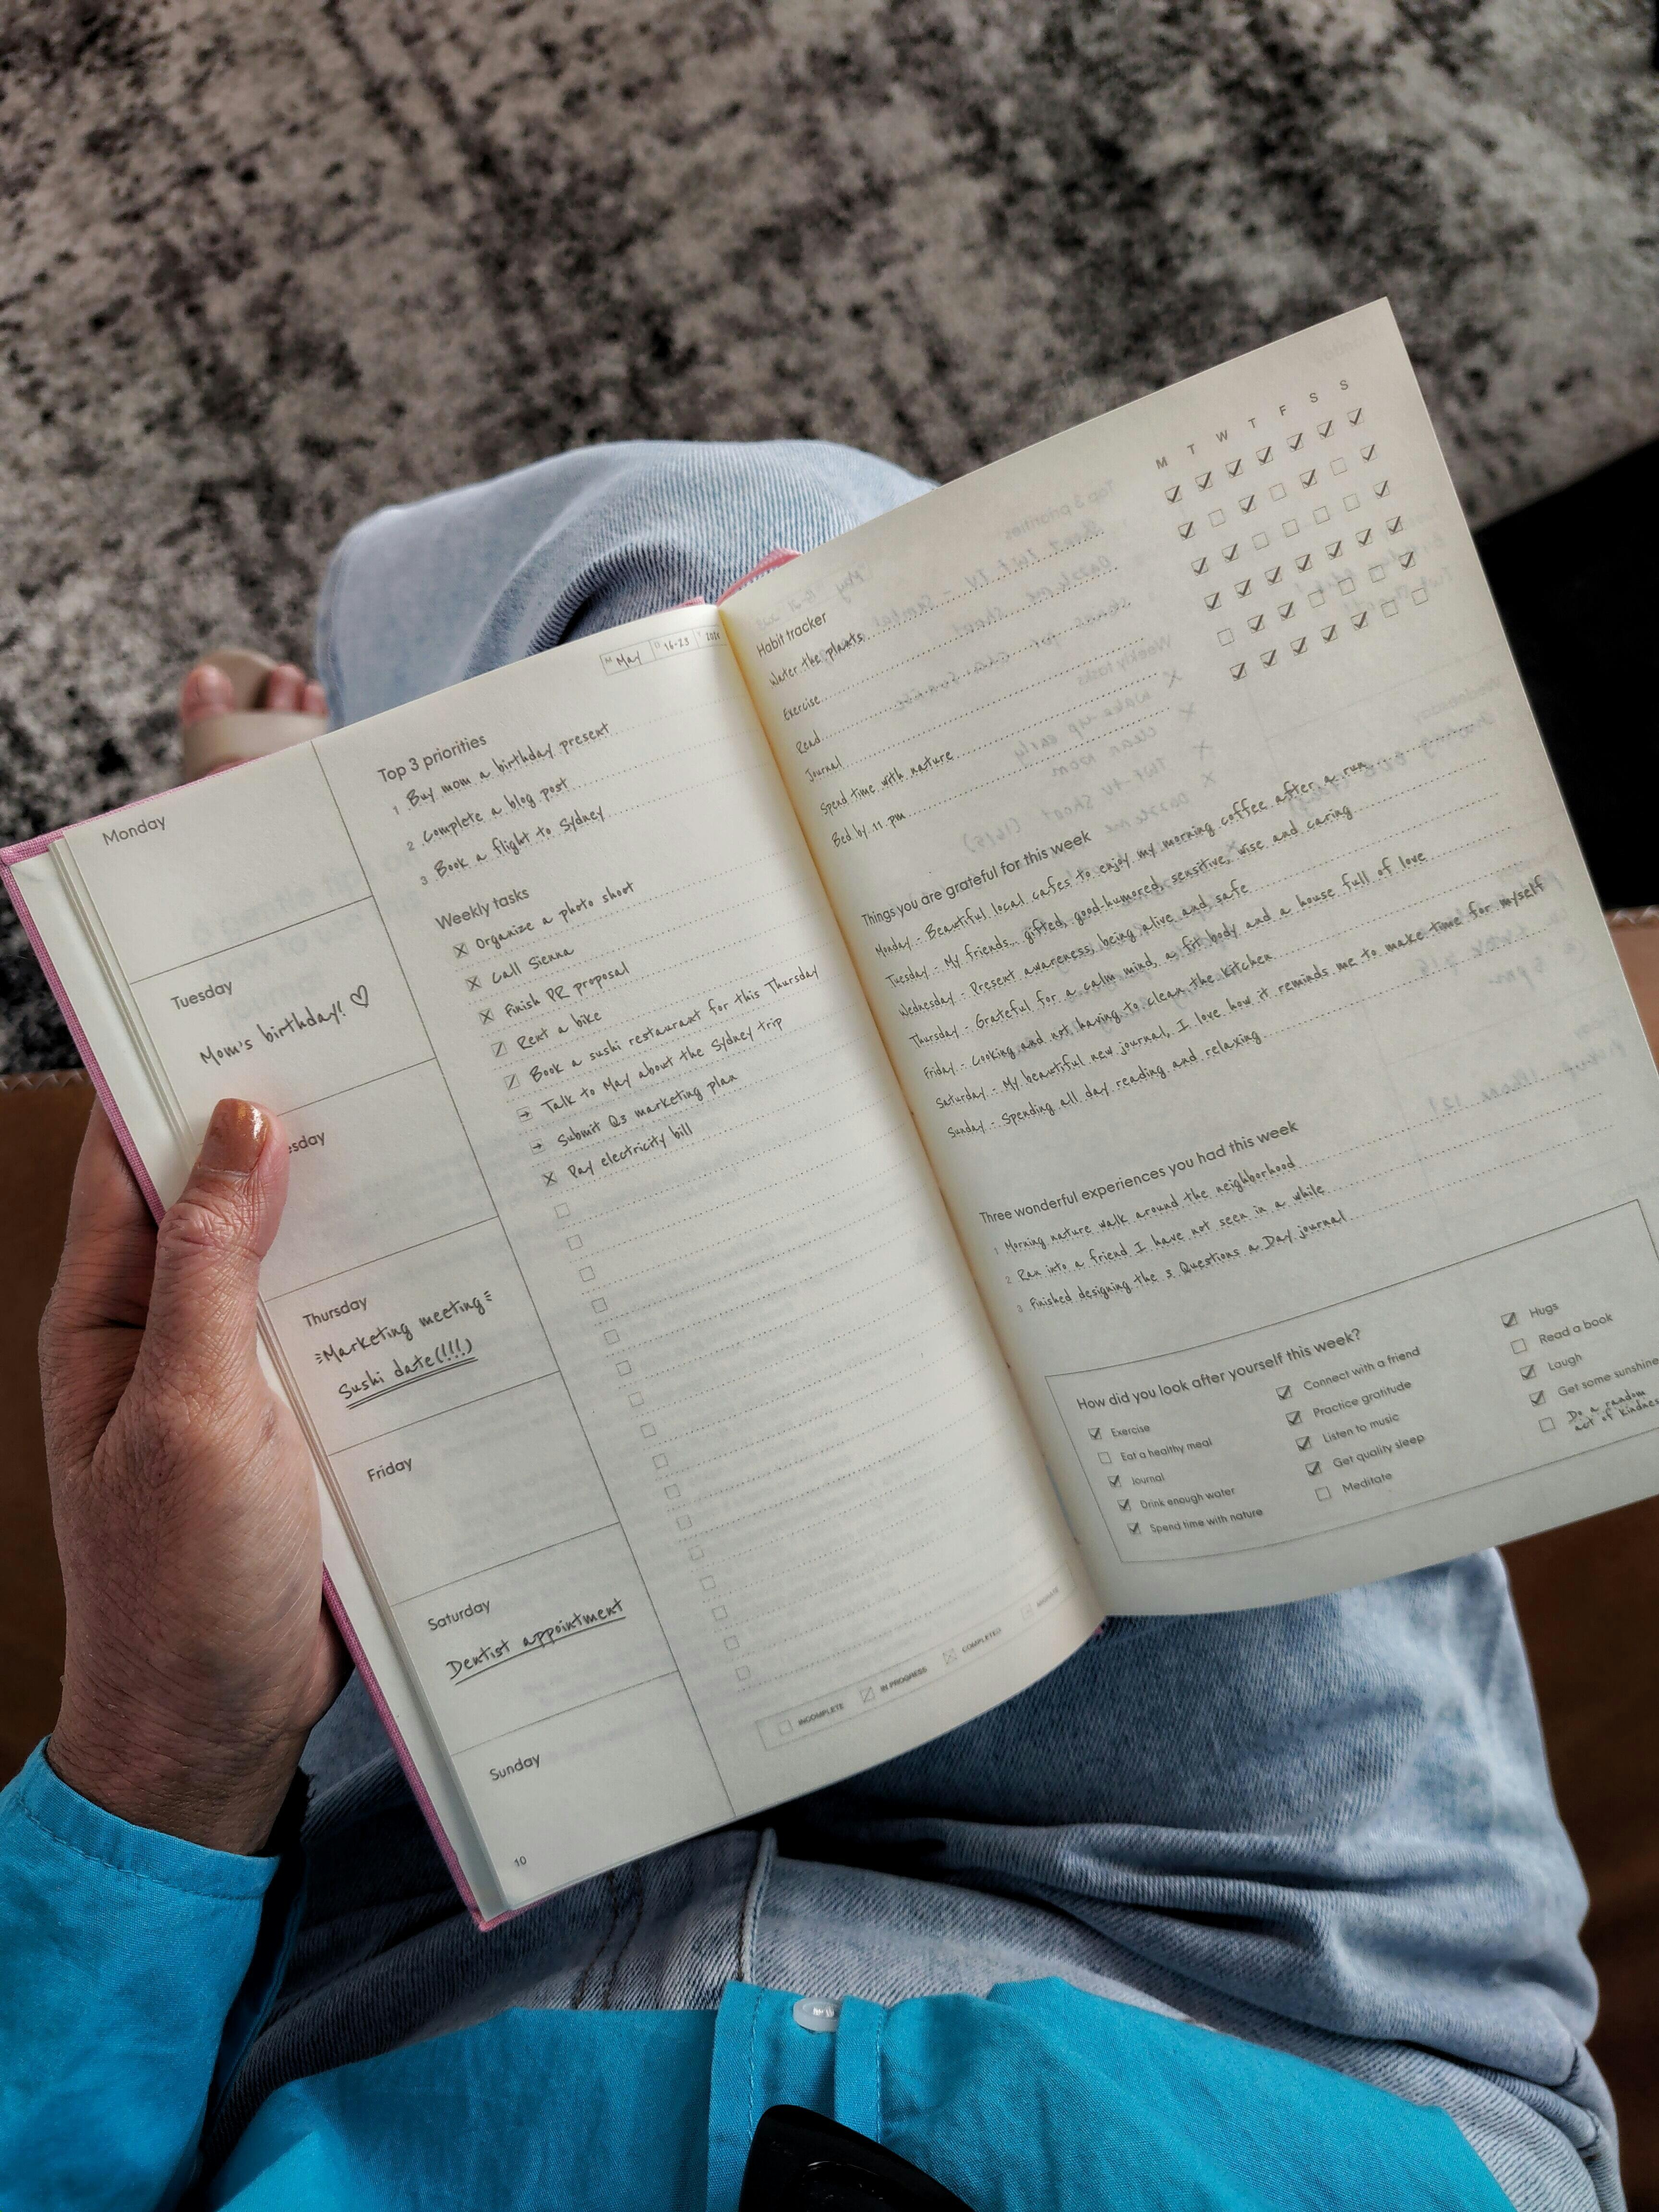 May 16-23
Monday
Tuesday
Mom's birthday! ♡
esday
Thursday
Marketing meeting
Sushi date(!!!)
Friday
Saturday
Dentist appointment
Sunday
10
Top 3 priorities
1 Buy mom a birthday present
2 Complete a blog post
3 Book a flight to Sydney
Weekly tasks
Organize a photo shoot
Call Sienna
Finish PR proposal
Rent a bike
Book a sushi restaurant for this Thursday
Talk to May about the Sydney trip
Submit Q3 marketing plan
Pay electricity bill
INCOMPLETE IN PROGRESS COMPLETED
Habit tracker M T W T F S S
Water the plants
Exercise
Read
Journal
Spend time with nature
Bed by 11 pm
Things you are grateful for this week
Monday - Beautiful local cafes to enjoy my morning coffee after a run
Tuesday - My friends... gifted, good-humored, sensitive, wise and caring
Wednesday - Present awareness, being alive and safe
Thursday - Grateful for a calm mind, a fit body and a house full of love
Friday - Cooking and not having to clean the kitchen
Saturday - My beautiful new journal, I love how it reminds me to make time for myself
Sunday - Spending all day reading and relaxing
Three wonderful experiences you had this week
1 Morning nature walk around the neighborhood
2 Ran into a friend I have not seen in a while
3 Finished designing the 3 Questions a Day journal
How did you look after yourself this week?
Exercise
Eat a healthy meal
Journal
Drink enough water
Spend time with nature
Connect with a friend
Practice gratitude
Listen to music
Get quality sleep
Meditate
Hugs
Read a book
Laugh
Get some sunshine
Do a random
act of kindness